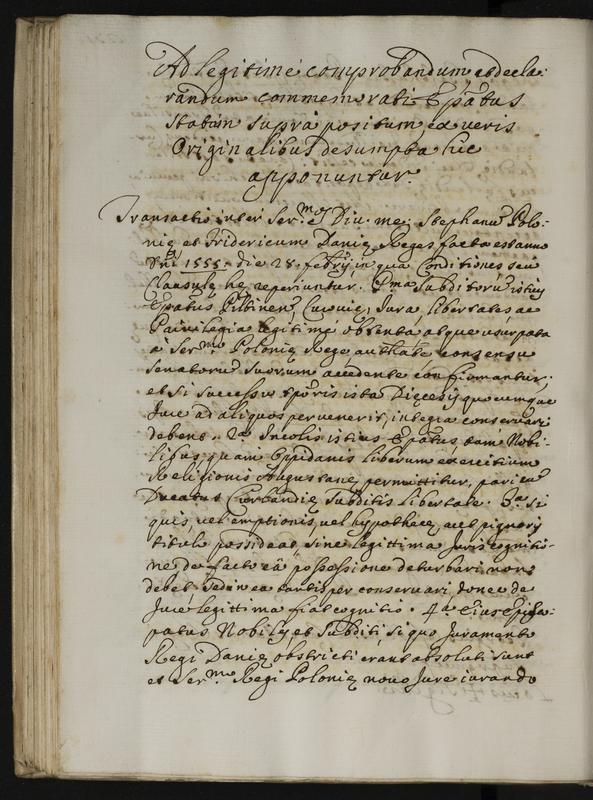 Ad legitimé comprobandum et decla:
randum commemorati Epatus
Statum supra positum ex veris
Originalibus desumpta hic
apponuntur.
Transactio inter Ser.mos Diu. me: Stephanū Polo-
nię et Fridericum Danię Reges facta est anno
Dni 1555. die 28. febrÿ in qua Conditiones seu
Clausulę hę reperiuntur. Pma Subditorū istius
Epatus Piltinen, Curonię, Jura, libertates ac
Priuilegia legitimé obtenta atque usurpata
à Ser.mo Polonię Rege authate consensu
senatorū suorum accedente confirmantur;
et si successu tporis ista Dięcesis quocumque
Jure ad aliquos peruenerit, integra conseruari
debent. 2a Incolis istius Epatus, tam Nobi-
libus, quam Oppidanis liberum exercitium
Religionis Augustanę permittitur, pari cū
Ducatus Curlandię subditis libertate. 3a si
quis, uel emptionis, uel hypothecę, uel pignoris
titulo possideat sine legittima Juris cognitio-
ne de facto eā possessione deturbari non
debet, sed in ea tantisper conseruari, donec de
Jure legittima fiat cognitio. 4a Eius Episco:
patus Nobiles et Subditi si quo Juramento
Regi Danię obstricti erant absoluti sunt
et Ser.mo Regi Polonię nouo Jure iurando